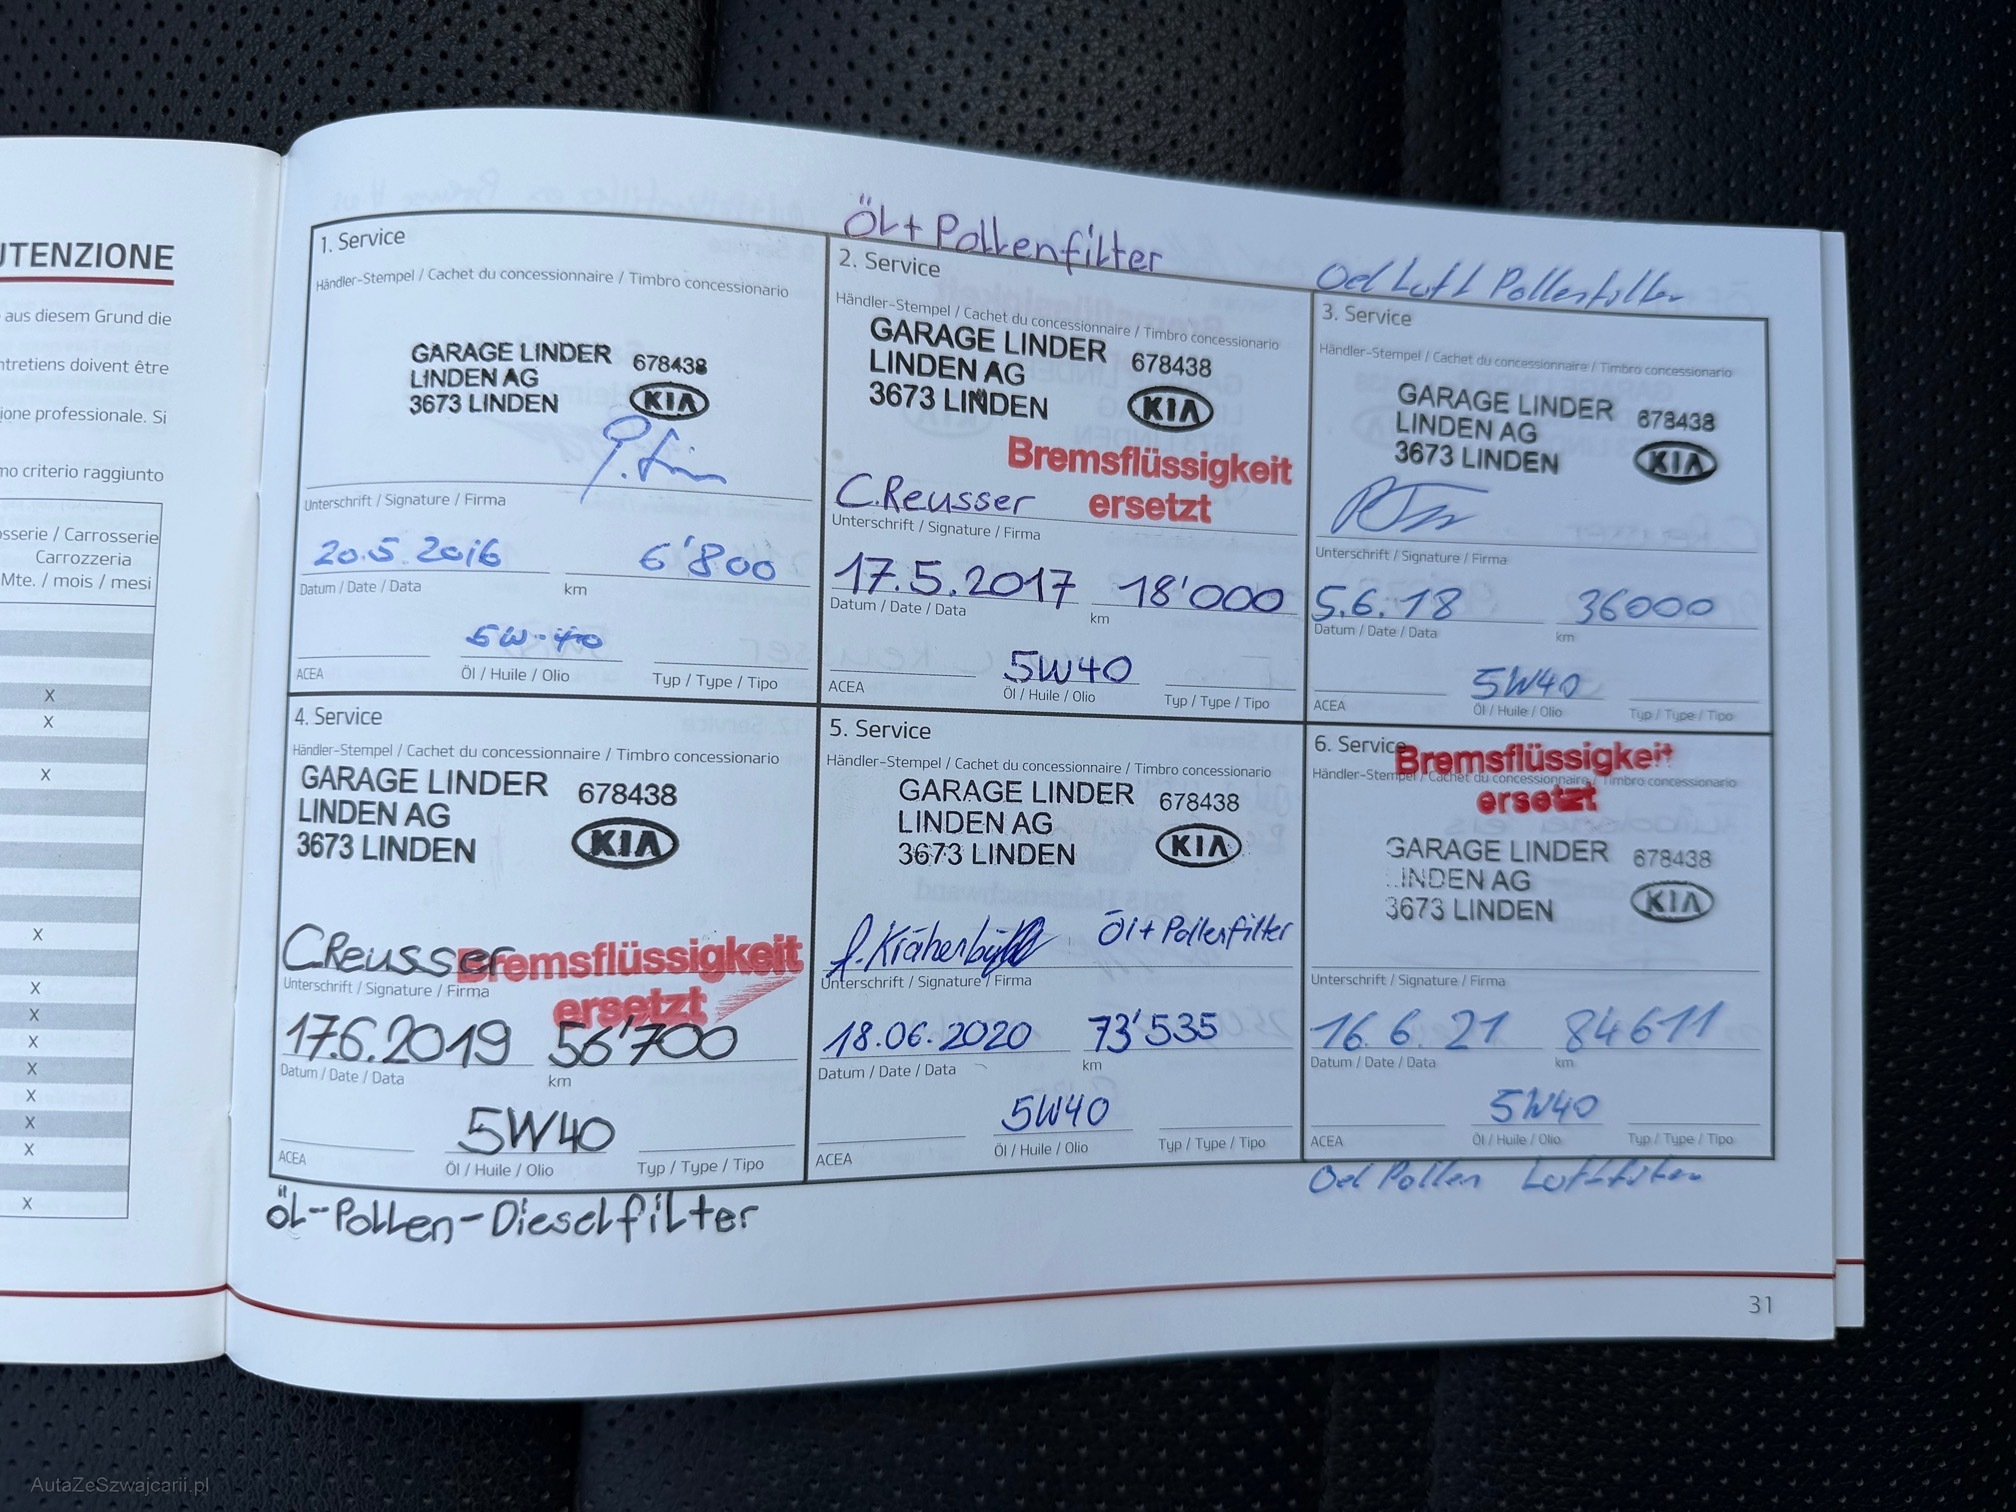 UTENZIONE
aus diesem Grund die
ntretiens doivent être
ione professionale. Si
no criterio raggiunto
sserie / Carrosserie
Carrozzeria
Mte. / mois / mesi
X
X
X
X
X
X
X
X
X
X
X
X
1. Service
Händler-Stempel / Cachet du concessionnaire / Timbro concessionario
GARAGE LINDER 678438
LINDEN AG
3673 LINDEN KIA
Unterschrift / Signature / Firma
20.5.2016 6'800
Datum / Date / Data km
5W-40
ACEA Öl / Huile / Olio Typ / Type / Tipo
ÖL+Pollenfilter
2. Service
Händler-Stempel / Cachet du concessionnaire / Timbro concessionario
GARAGE LINDER 678438
LINDEN AG
3673 LINDEN KIA
Bremsflüssigkeit
ersetzt
C.Reusser
Unterschrift / Signature / Firma
17.5.2017 18'000
Datum / Date / Data km
5W40
ACEA Öl / Huile / Olio Typ / Type / Tipo
Oel Luft Pollenfilter
3. Service
Händler-Stempel / Cachet du concessionnaire / Timbro concessionario
GARAGE LINDER 678438
LINDEN AG
3673 LINDEN KIA
Unterschrift / Signature / Firma
5.6.18 36000
Datum / Date / Data km
5W40
ACEA Öl / Huile / Olio Typ / Type / Tipo
4. Service
Händler-Stempel / Cachet du concessionnaire / Timbro concessionario
GARAGE LINDER 678438
LINDEN AG
3673 LINDEN KIA
C.Reusser Bremsflüssigkeit
ersetzt
Unterschrift / Signature / Firma
17.6.2019 56'700
Datum / Date / Data km
5W40
ACEA Öl / Huile / Olio Typ / Type / Tipo
ÖL-Pollen-Dieselfilter
5. Service
Händler-Stempel / Cachet du concessionnaire / Timbro concessionario
GARAGE LINDER 678438
LINDEN AG
3673 LINDEN KIA
Öl+Pollenfilter
Unterschrift / Signature / Firma
18.06.2020 73'535
Datum / Date / Data km
5W40
ACEA Öl / Huile / Olio Typ / Type / Tipo
6. Service
Bremsflüssigkeit
ersetzt
Händler-Stempel / Cachet du concessionnaire / Timbro concessionario
GARAGE LINDER 678438
LINDEN AG
3673 LINDEN KIA
Unterschrift / Signature / Firma
16.6.21 84611
Datum / Date / Data km
5W40
ACEA Öl / Huile / Olio Typ / Type / Tipo
Oel Pollen Luftfilter
31
AutaZeSzwajcarii.pl